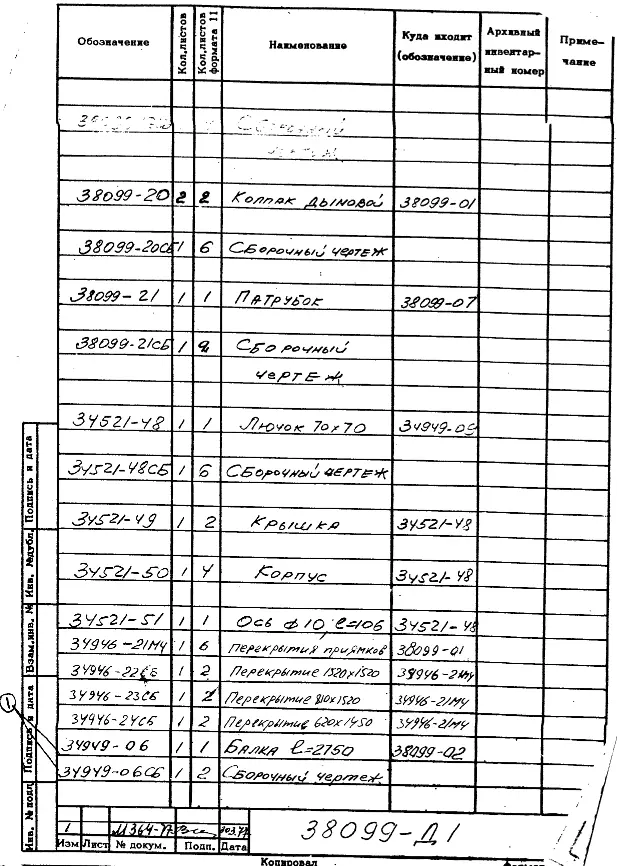 Обозначение Кол.листов Кол.листов формата 11 Наименование Куда входит (обозначение) Архивный инвентарный номер Примечание
Сборочный
чертеж
38099-20 2 2 Колпак дымовой 38099-01
38099-20СБ 1 6 Сборочный чертеж
38099-21 1 1 Патрубок 38099-07
38099-21СБ 1 2 Сборочный
чертеж
34521-48 1 1 Лючок 70х70 34949-09
34521-48СБ 1 6 Сборочный чертеж
34521-49 1 2 Крышка 34521-48
34521-50 1 4 Корпус 34521-48
34521-51 1 1 Ось ф10, l=106 34521-48
34946-21МЧ 1 6 Перекрытия приямков 38099-01
34946-22СБ 1 2 Перекрытие 1520х1520 34946-21МЧ
34946-23СБ 1 2 Перекрытие 810х1520 34946-21МЧ
34946-24СБ 1 2 Перекрытие 620х1450 34946-21МЧ
34949-06 1 1 Балка l=2750 38099-02
34949-06СБ 1 2 Сборочный чертеж
Подпись и дата
Инв. №дубл.
Взам.инв. №
Подпись и дата
Инв. № подл.
1
1 М364-77
Изм Лист № докум. Подп. Дата
38099-Д1
Копировал